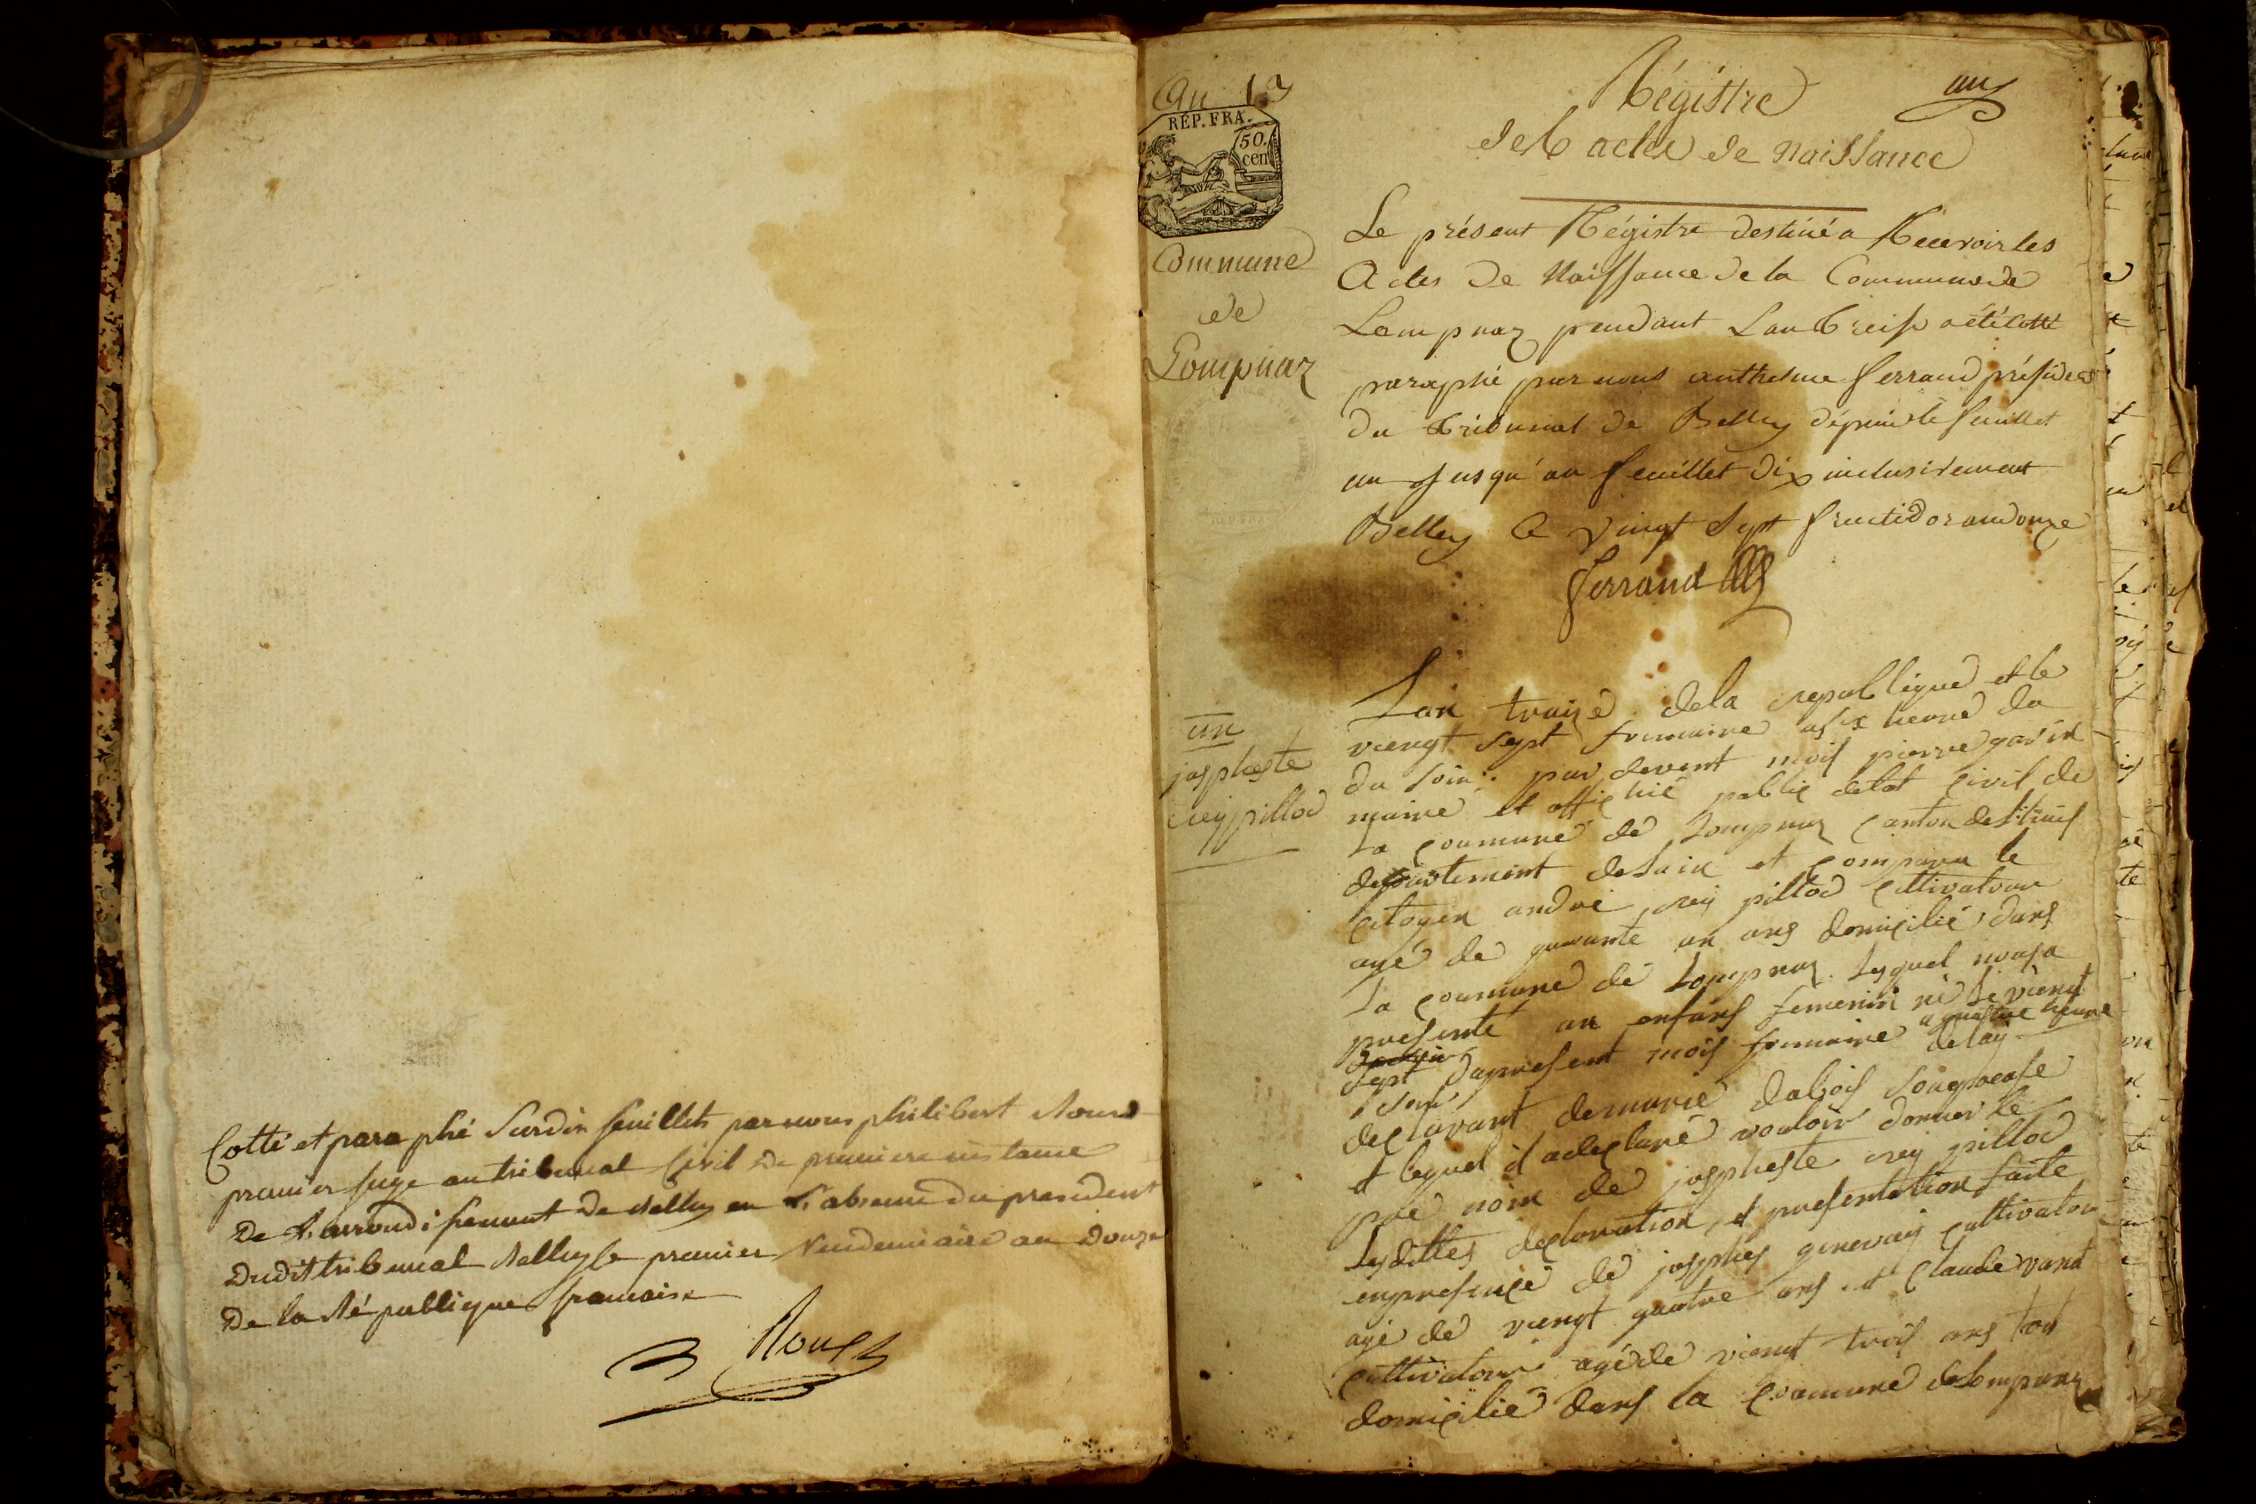 Cotté et paraphé Sur dix feuillets par nous philibert Roux
premier juge au tribunal Civil De premiere instance
De L'arrondissement De Belley en L'absence du president
Dudit tribunal Belley le premier Vendemiaire an Douze
De la République francaise
Roux
An 13
REP. FRA.
50.
cen
Commune
de
Lompnaz
un
Régistre
des actes de Naissance
Le présent Régistre destiné a Recevoir les
Actes De Naissance de la Commune de
Lompnaz pendant L'an treise a été cotté
paraphé par nous anthelme ferrand présidens
du tribunal de Belley dépuis le feuillet
un Jusqu'au feuillet dix inclusivement
Belley le vingt Sept fructidor an douze
ferrand
un
jospheste
rey pillod
Lan traize dela republique et le
viengt sept frimaire a six heure du
du soir par devent mois pierre gavin
maire et officié public detat civil de
la coumune de Lompnaz canton de
departement de Lain et comparu le
citoyen andré rey pillod cultivatour
agé de quarante un ans domicilié dans
la coumune de Lompnaz. Lequel nousa
presenté un enfans femenin né le viengt
sept dupresent mois frimaire a quattre heure
du soir
declarant demarie dubois son
et lequel il a declaré vouloir donner le
pre nom de jospheste rey pillod
Lesdittes declaration et presentation faite
enpresence de josphes genevay cultivatour
agé de viengt quatre ans et Claude
cultivatour agé de viengt trois ans tout
domicilié dans la coumune de Lompnaz